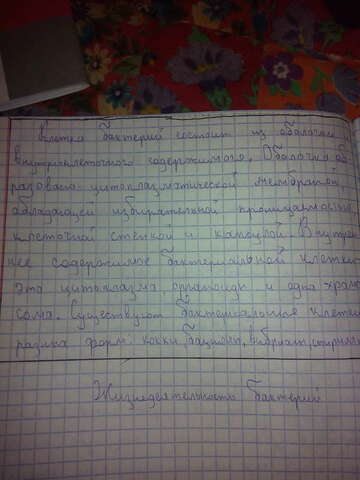 Клетка бактерий состоит из оболочки
внутриклеточного содержимого. Оболочка об
разована цитоплазматической мембраной,
обладающей избирательной проницаемостью
клеточной стенкой и капсулой. Внутрен
нее содержимое бактериальной клетки
это цитоплазма, органоиды и одна хромо
сома. Существуют бактериальные клетки
разных форм кокки, бациллы, вибрионы, спириллы
Жизнедеятельность бактерий